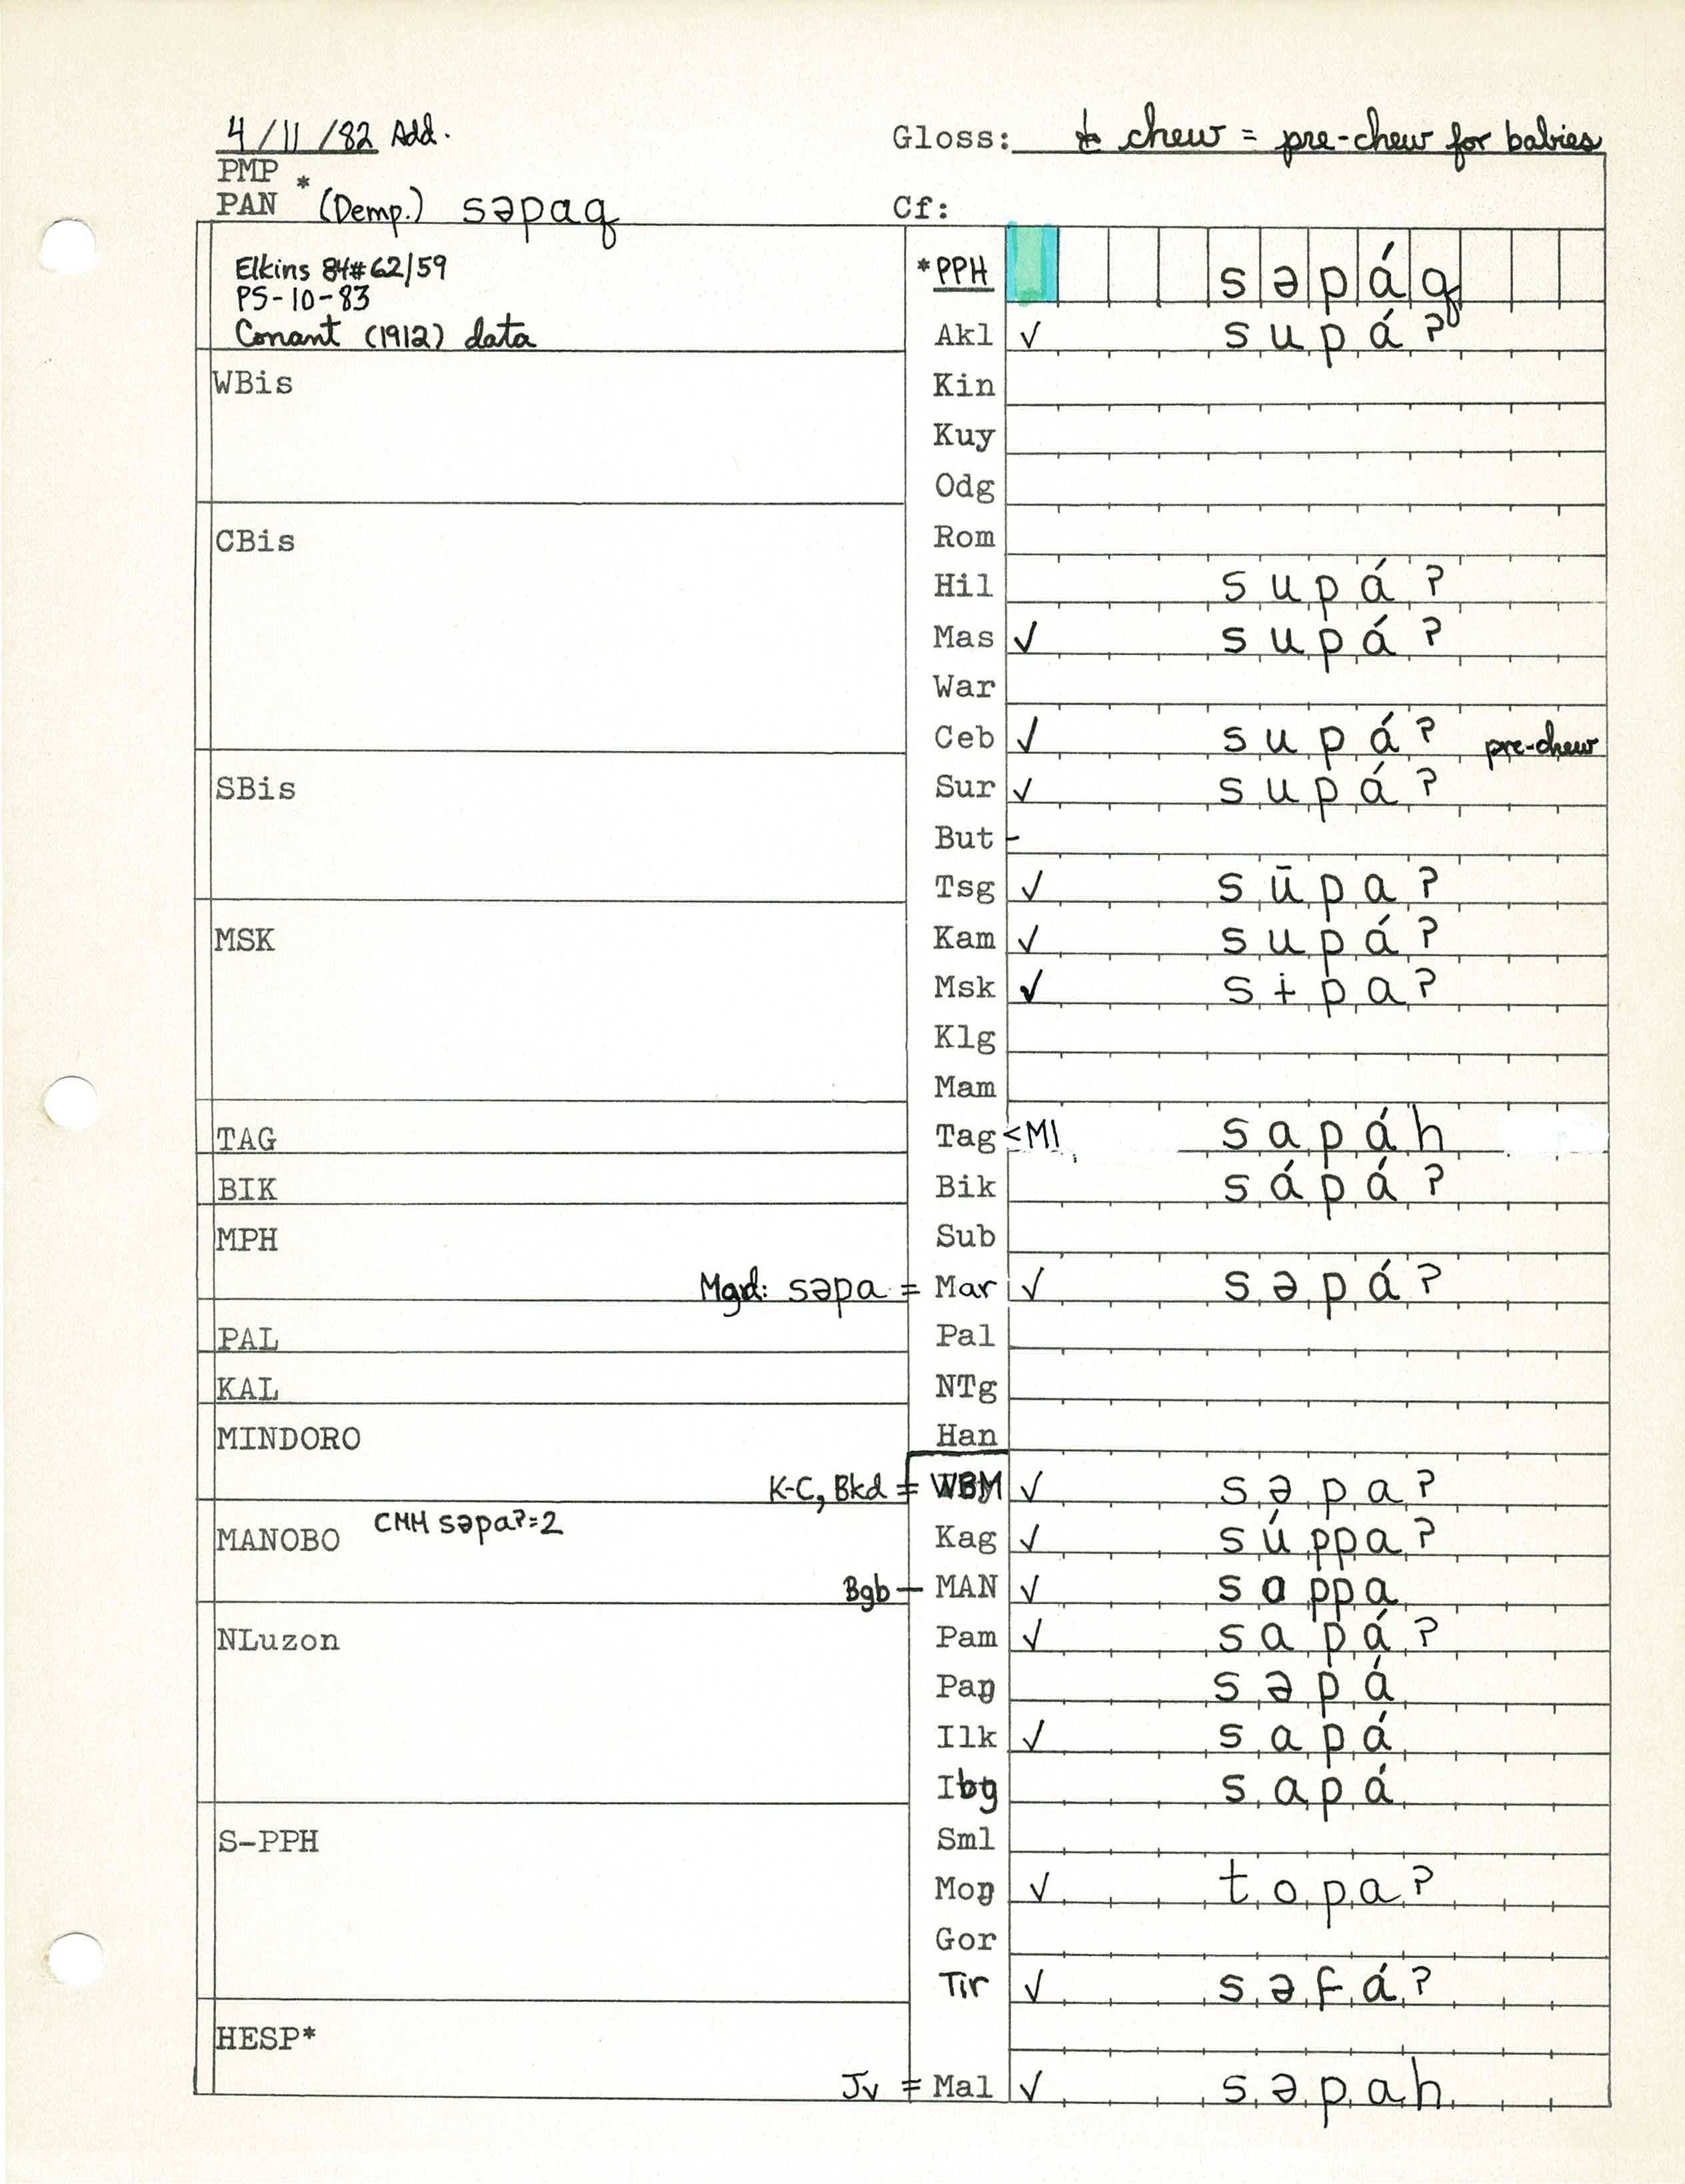 4/11/82 Add.
Gloss: to chew = pre-chew for babies
PMP
PAN * (Demp.) səpaq
Cf:
Elkins 84#62/59
PS-10-83
Conant (1912) data
*PPH səpáq
Akl ✓ supáʔ
WBis
Kin
Kuy
Odg
CBis
Rom
Hil supáʔ
Mas ✓ supáʔ
War
Ceb ✓ supáʔ pre-chew
SBis
Sur ✓ supáʔ
But -
Tsg ✓ sūpaʔ
MSK
Kam ✓ supáʔ
Msk ✓ sɨpaʔ
Klg
Mam
TAG
Tag <Ml sapáh
BIK
Bik sápáʔ
MPH
Sub
Mgd: səpa = Mar ✓ səpáʔ
PAL
Pal
KAL
NTg
MINDORO
Han
K-C, Bkd = WBM ✓ səpaʔ
MANOBO CMM səpaʔ=2
Kag ✓ súppaʔ
Bgb — MAN ✓ sappa
NLuzon
Pam ✓ sapáʔ
Paŋ səpá
Ilk ✓ sapá
Ibg sapá
S-PPH
Sml
Moŋ ✓ topaʔ
Gor
Tir ✓ səfáʔ
HESP*
Jv = Mal ✓ səpah